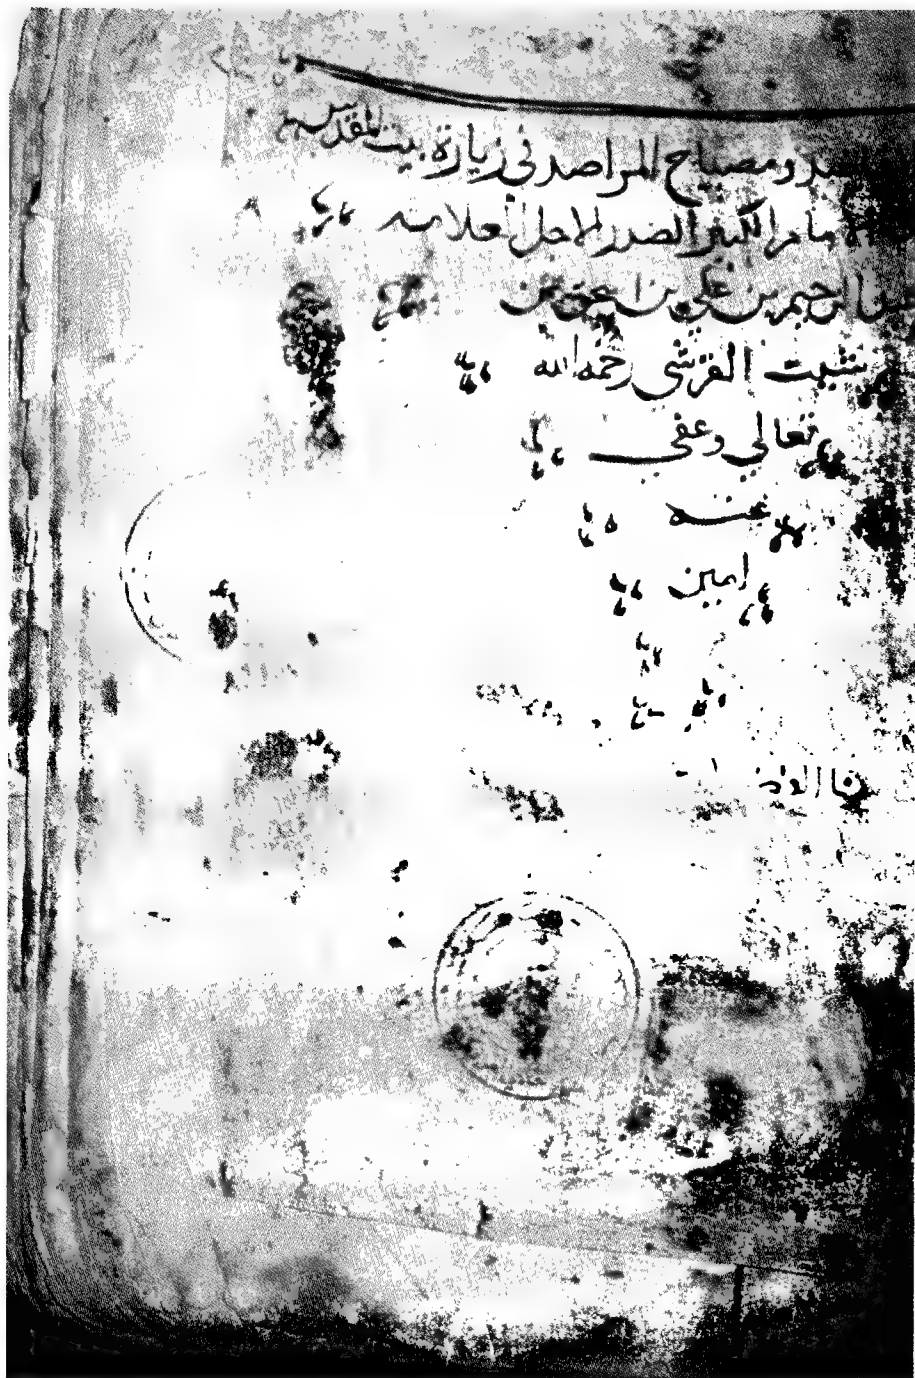 ومصباح المراصد في زيارة بيت المقدس
الامام الكبير الصدر الاجل العلامه
الرحيم بن علي بن اسحق بن
شيت القرشي رحمه الله
تعالي وعفي
عنه
امين